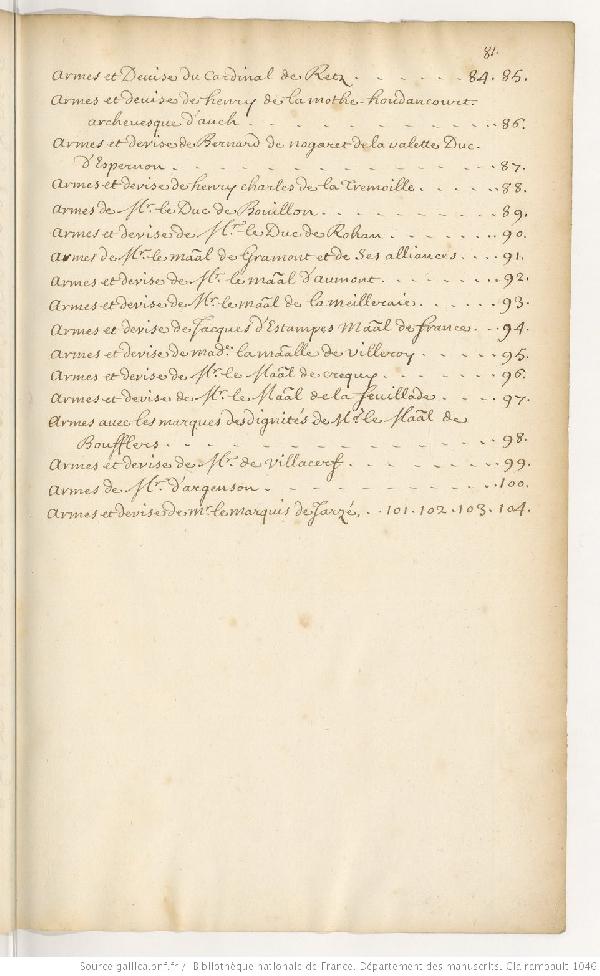 81.
Armes et Devise du Cardinal de Retz . . . . . . . 84. 85.
Armes et devise de henry de la mothe-houdancourt.
archevesque d'auch . . . . . . . . . . . . 86.
Armes et devise de Bernard de nogaret de la valette Duc.
D'Espernon . . . . . . . . . . . . . . . 87.
Armes et devise de henry charles de la Tremoille . . . . . 88.
Armes de Mr. le Duc de Bouillon . . . . . . . . . 89.
Armes et devise de Mr. le Duc de Rohan . . . . . . 90.
Armes de Mr. le maãl de Gramont et de Ses alliances . . . 91.
Armes et devise de Mr. le maãl D'aumont . . . . . . 92.
Armes et devise de Mr. le maãl de la meilleraie . . . . . 93.
Armes et devise de Jacques d'Estampes Maãl de france . . 94.
Armes et devise de made. la maãlle de Villeroy . . . . . 95.
Armes et devise de Mr. le Maãl de crequy . . . . . . 96.
Armes et devise de Mr. le Maãl de la feuillade . . . . 97.
Armes avec les marques des dignités de Mr. le Maãl de
Boufflers . . . . . . . . . . . . . . . 98.
Armes et devise de Mr. de Villacerf . . . . . . . . 99.
Armes de Mr. D'argenson . . . . . . . . . . . 100.
Armes et devise de mr. le marquis de Jarzé . . 101 . 102 . 103 . 104.
Source gallica.bnf.fr / Bibliothèque nationale de France. Département des manuscrits. Clairambault 1046